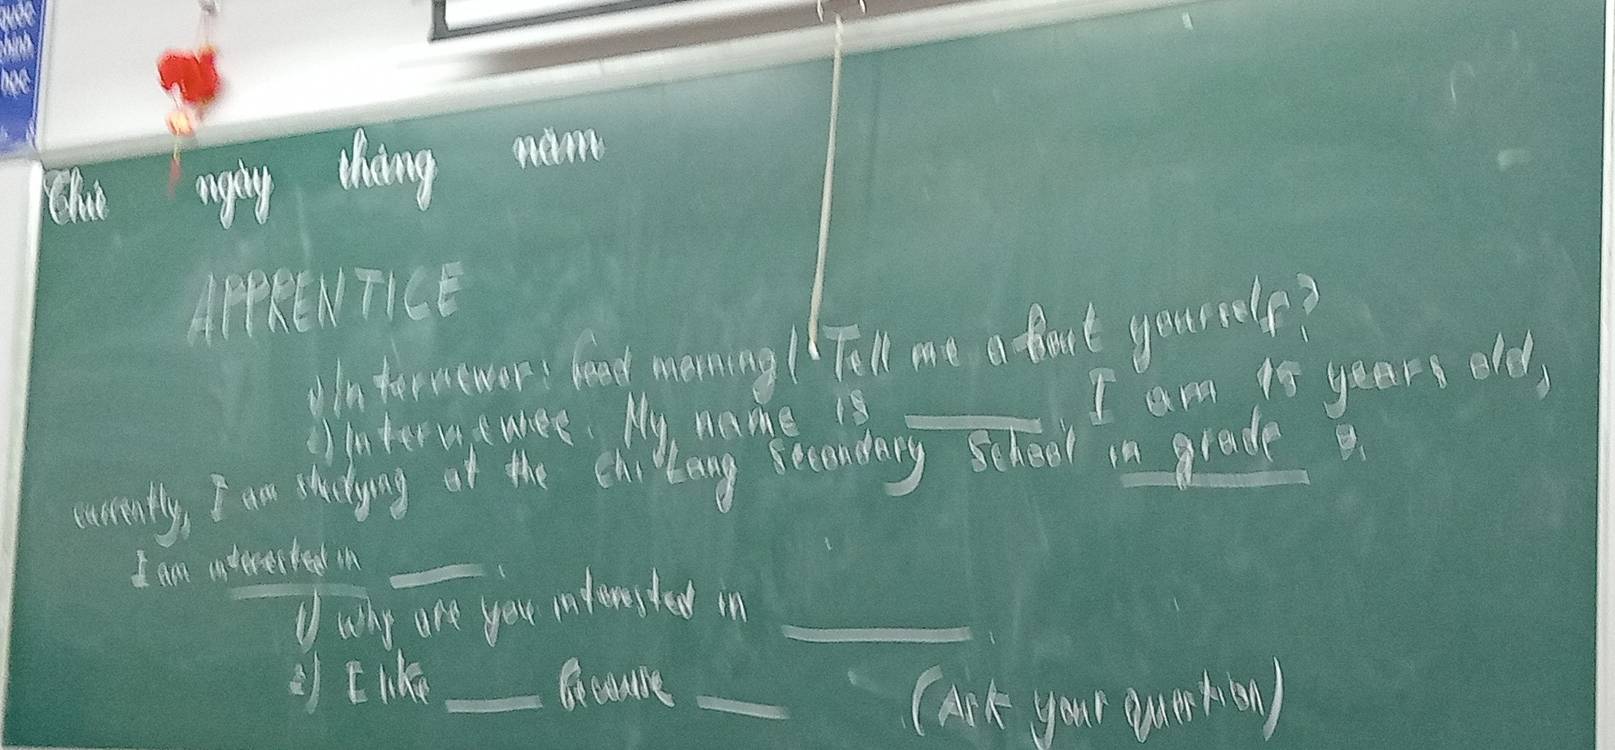 quốc
chính
học
Thứ ngày tháng năm
APPRENTICE
1) Interviewer: Good morning! Tell me about yourself?
2) Interviewee. My name is ____. I am 15 years old,
currently, I am studying at the Chi Lang Secondary School in grade
I am interested in ____.
1) Why are you interested in ____.
2) I like ____ because ____ (Ask your question)